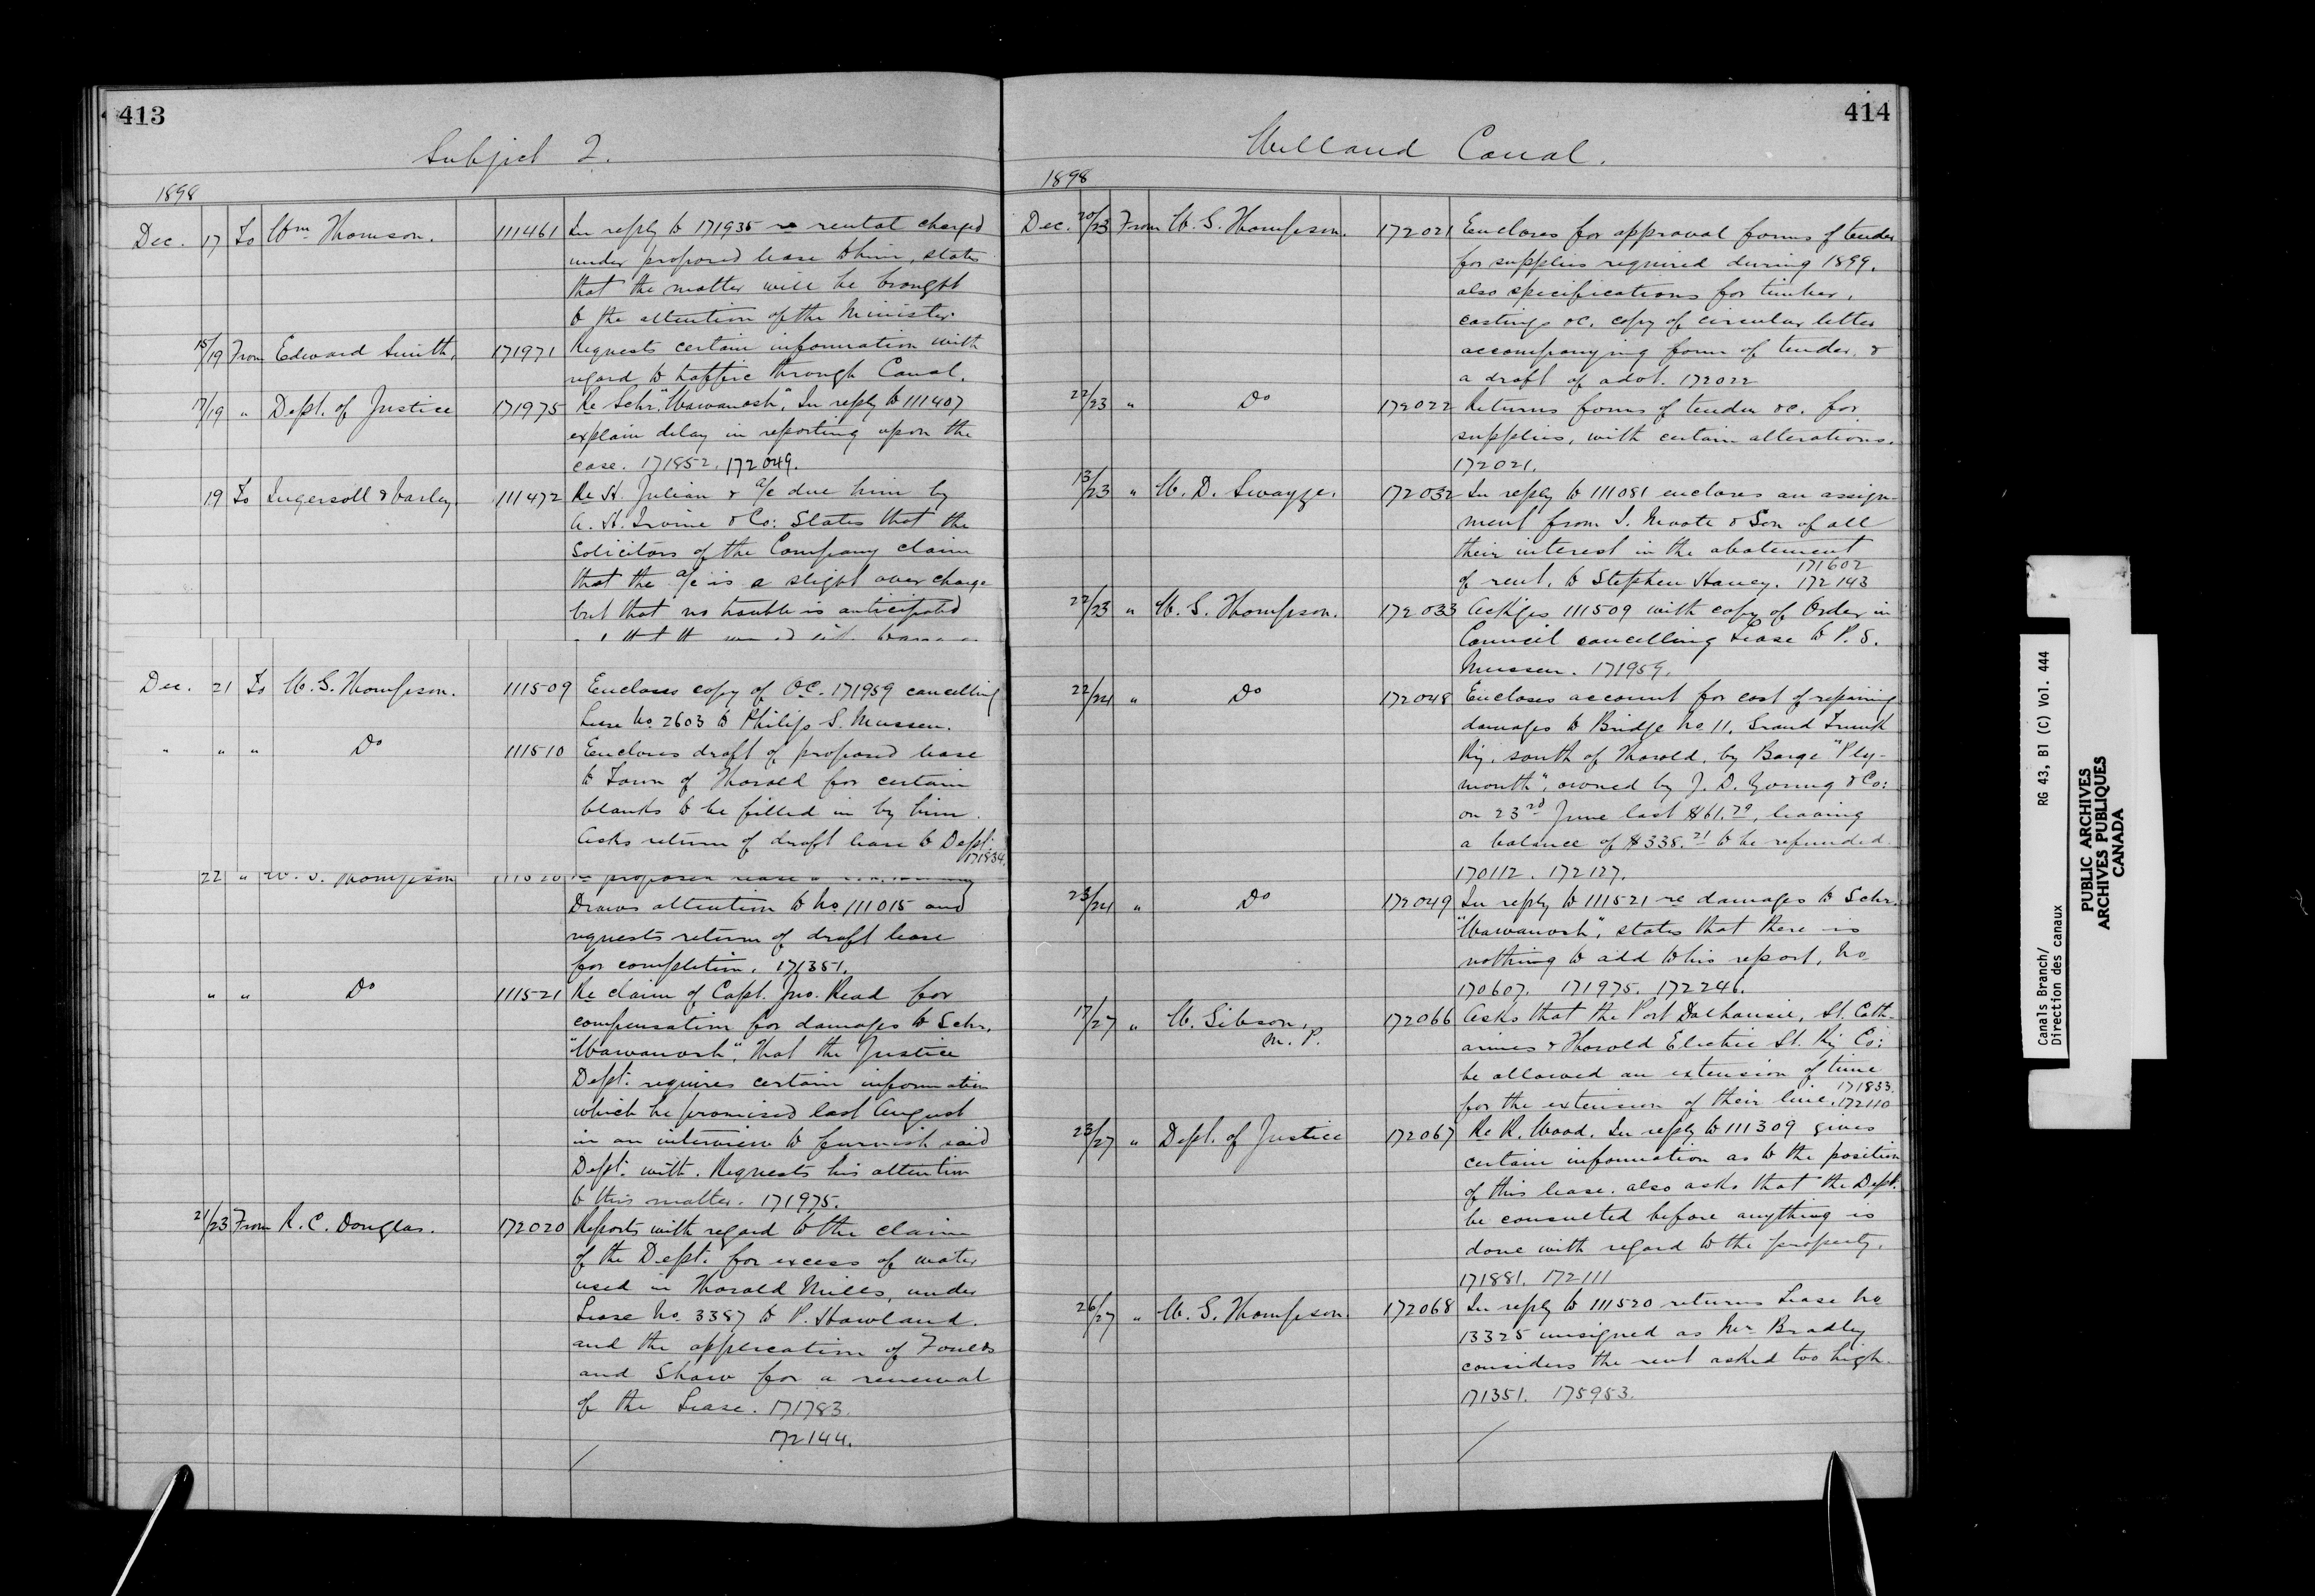 413
Subject 2.
1898
Dec. 17 To Wm Thomson. 111461 In reply to 171935 re rental charged
under proposed lease to him, states
that the matter will be brought
to the attention of the Minister.
15/19 From Edward Smith, 171971 Requests certain information with
regard to traffic through Canal.
17/19 " Dept. of Justice 171975 Re Schr. "Wawanosh". In reply to 111407
explain delay in reporting upon the
case. 171852. 172049.
19 To Ingersoll & Varley 111472 Re St. Julian & a/c due him by
A. H. Irvine & Co: States that the
Solicitors of the Company claim
that the a/c is a slight over charge
but that no trouble is anticipated
Dec. 21 To W. G. Thompson. 111509 Encloses copy of O.C. 171959 cancelling
Lease No. 2603 to Philip S. Mussen.
" " " Do 111510 Encloses draft of proposed lease
to Town of Thorold for certain
blanks to be filled in by him.
Asks return of draft lease to Dept.
171834.
22 " W. G. Thompson 111520 re proposed lease
Draws attention to No 111015 and
requests return of draft lease
for completion. 171351.
" " Do 111521 Re claim of Capt. Jno. Read for
compensation for damages to Schr.
"Wawanosh". That the Justice
Dept. requires certain information
which he promised last August
in an interview to furnish said
Dept. with. Requests his attention
to this matter. 171975.
21/23 From R. C. Douglas. 172020 Reports with regard to the claim
of the Dept. for excess of water
used in Thorold Mills, under
Lease No. 3387 to P. Howland.
and the application of Foulds
and Shaw for a renewal
of the Lease. 171783.
172144.
414
Welland Canal.
1898
Dec. 20/23 From W. G. Thompson. 172021 Encloses for approval forms of tender
for supplies required during 1899.
also specifications for timber,
castings &c. copy of circular letter
accompanying form of tender, &
a draft of advt. 172022
22/23 " Do 172022 Returns forms of tender &c. for
supplies, with certain alterations.
172021.
13/23 " W. D. Swayze. 172032 In reply to 111081 encloses an assign-
ment from J. Moote & Son of all
their interest in the abatement
of rent, to Stephen Haney. 171602
172143
22/23 " W. G. Thompson. 172033 Ackges 111509 with copy of Order in
Council cancelling Lease to P. S.
Mussen. 171959.
22/24 " Do 172048 Encloses account for cost of repairing
damages to Bridge No 11, Grand Trunk
Ry. south of Thorold, by Barge "Ply-
mouth", owned by J. D. Young & Co:
on 23rd June last $61.79, leaving
a balance of $338.21 to be refunded.
170112. 172127.
23/24 " Do 172049 In reply to 111521 re damages to Schr.
"Wawanosh", states that there is
nothing to add to his report, No
170607. 171975. 172246.
17/27 " W. Gibson, M.P. 172066 Asks that the Port Dalhousie, St. Cath-
arines & Thorold Electric St. Ry Co:
be allowed an extension of time
for the extension of their line. 171833.
172110
23/27 " Dept. of Justice 172067 Re R. Wood. In reply to 111309 gives
certain information as to the position
of this lease. also asks that the Dept.
be consulted before anything is
done with regard to the property.
171881. 172111
26/27 " W. G. Thompson. 172068 In reply to 111520 returns Lease No
13325 unsigned as Mr. Bradley
considers the rent asked too high.
171351. 175953.
Canals Branch/ RG 43, B1 (C) Vol. 444
Direction des canaux
PUBLIC ARCHIVES
ARCHIVES PUBLIQUES
CANADA